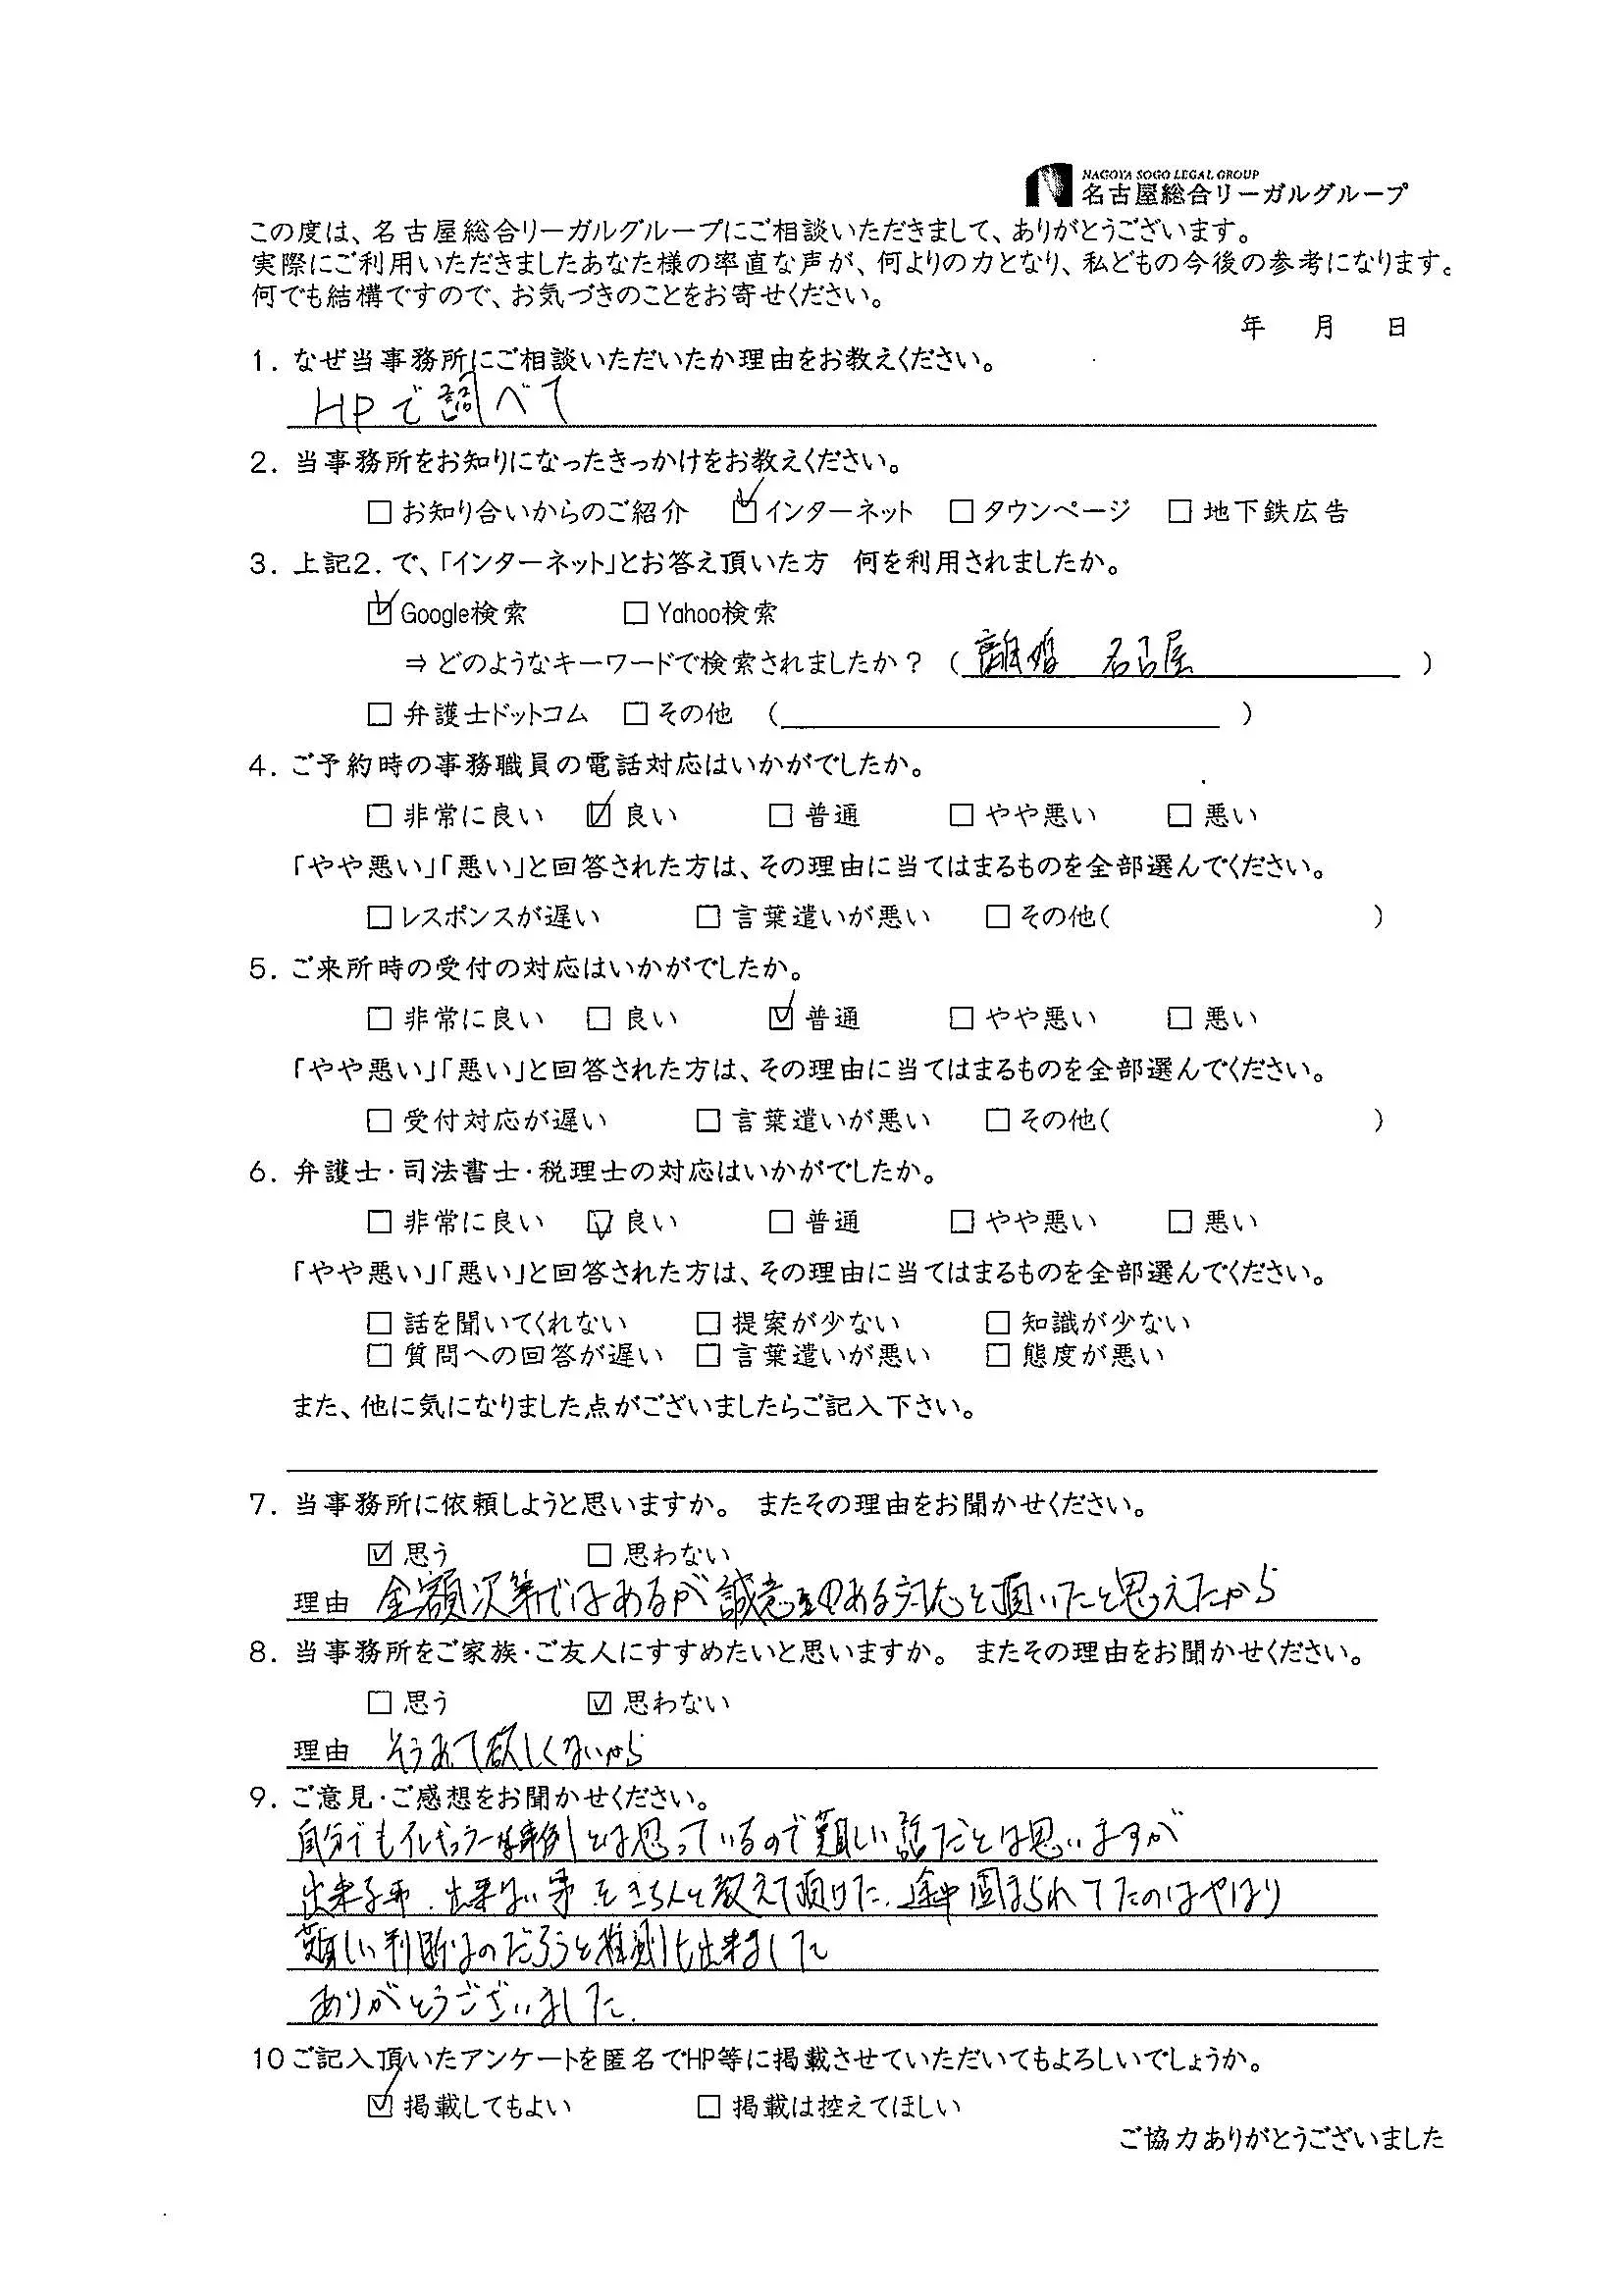 NAGOYA SOGO LEGAL GROUP
名古屋総合リーガルグループ
この度は、名古屋総合リーガルグループにご相談いただきまして、ありがとうございます。
実際にご利用いただきましたあなた様の率直な声が、何よりの力となり、私どもの今後の参考になります。
何でも結構ですので、お気づきのことをお寄せください。
年 月 日
1. なぜ当事務所にご相談いただいたか理由をお教えください。
HPで調べて
2. 当事務所をお知りになったきっかけをお教えください。
□ お知り合いからのご紹介 ☑ インターネット □ タウンページ □ 地下鉄広告
3. 上記2. で、「インターネット」とお答え頂いた方 何を利用されましたか。
☑ Google検索 □ Yahoo検索
⇒ どのようなキーワードで検索されましたか? (離婚 名古屋)
□ 弁護士ドットコム □ その他 ( )
4. ご予約時の事務職員の電話対応はいかがでしたか。
□ 非常に良い ☑ 良い □ 普通 □ やや悪い □ 悪い
「やや悪い」「悪い」と回答された方は、その理由に当てはまるものを全部選んでください。
□ レスポンスが遅い □ 言葉遣いが悪い □ その他( )
5. ご来所時の受付の対応はいかがでしたか。
□ 非常に良い □ 良い ☑ 普通 □ やや悪い □ 悪い
「やや悪い」「悪い」と回答された方は、その理由に当てはまるものを全部選んでください。
□ 受付対応が遅い □ 言葉遣いが悪い □ その他( )
6. 弁護士・司法書士・税理士の対応はいかがでしたか。
□ 非常に良い ☑ 良い □ 普通 □ やや悪い □ 悪い
「やや悪い」「悪い」と回答された方は、その理由に当てはまるものを全部選んでください。
□ 話を聞いてくれない □ 提案が少ない □ 知識が少ない
□ 質問への回答が遅い □ 言葉遣いが悪い □ 態度が悪い
また、他に気になりました点がございましたらご記入下さい。
7. 当事務所に依頼しようと思いますか。 またその理由をお聞かせください。
☑ 思う □ 思わない
理由 金額次第ではあるが誠意のある対応を頂いたと思えたから
8. 当事務所をご家族・ご友人にすすめたいと思いますか。 またその理由をお聞かせください。
□ 思う ☑ 思わない
理由 そうあって欲しくないから
9. ご意見・ご感想をお聞かせください。
自分でもイレギュラーな事例とは思っているので難しい話だとは思いますが
出来る事、出来ない事をきちんと教えて頂けた、途中 られてたのはやはり
難しい判断なのだろうと推測も出来ました
ありがとうございました.
10 ご記入頂いたアンケートを匿名でHP等に掲載させていただいてもよろしいでしょうか。
☑ 掲載してもよい □ 掲載は控えてほしい
ご協力ありがとうございました